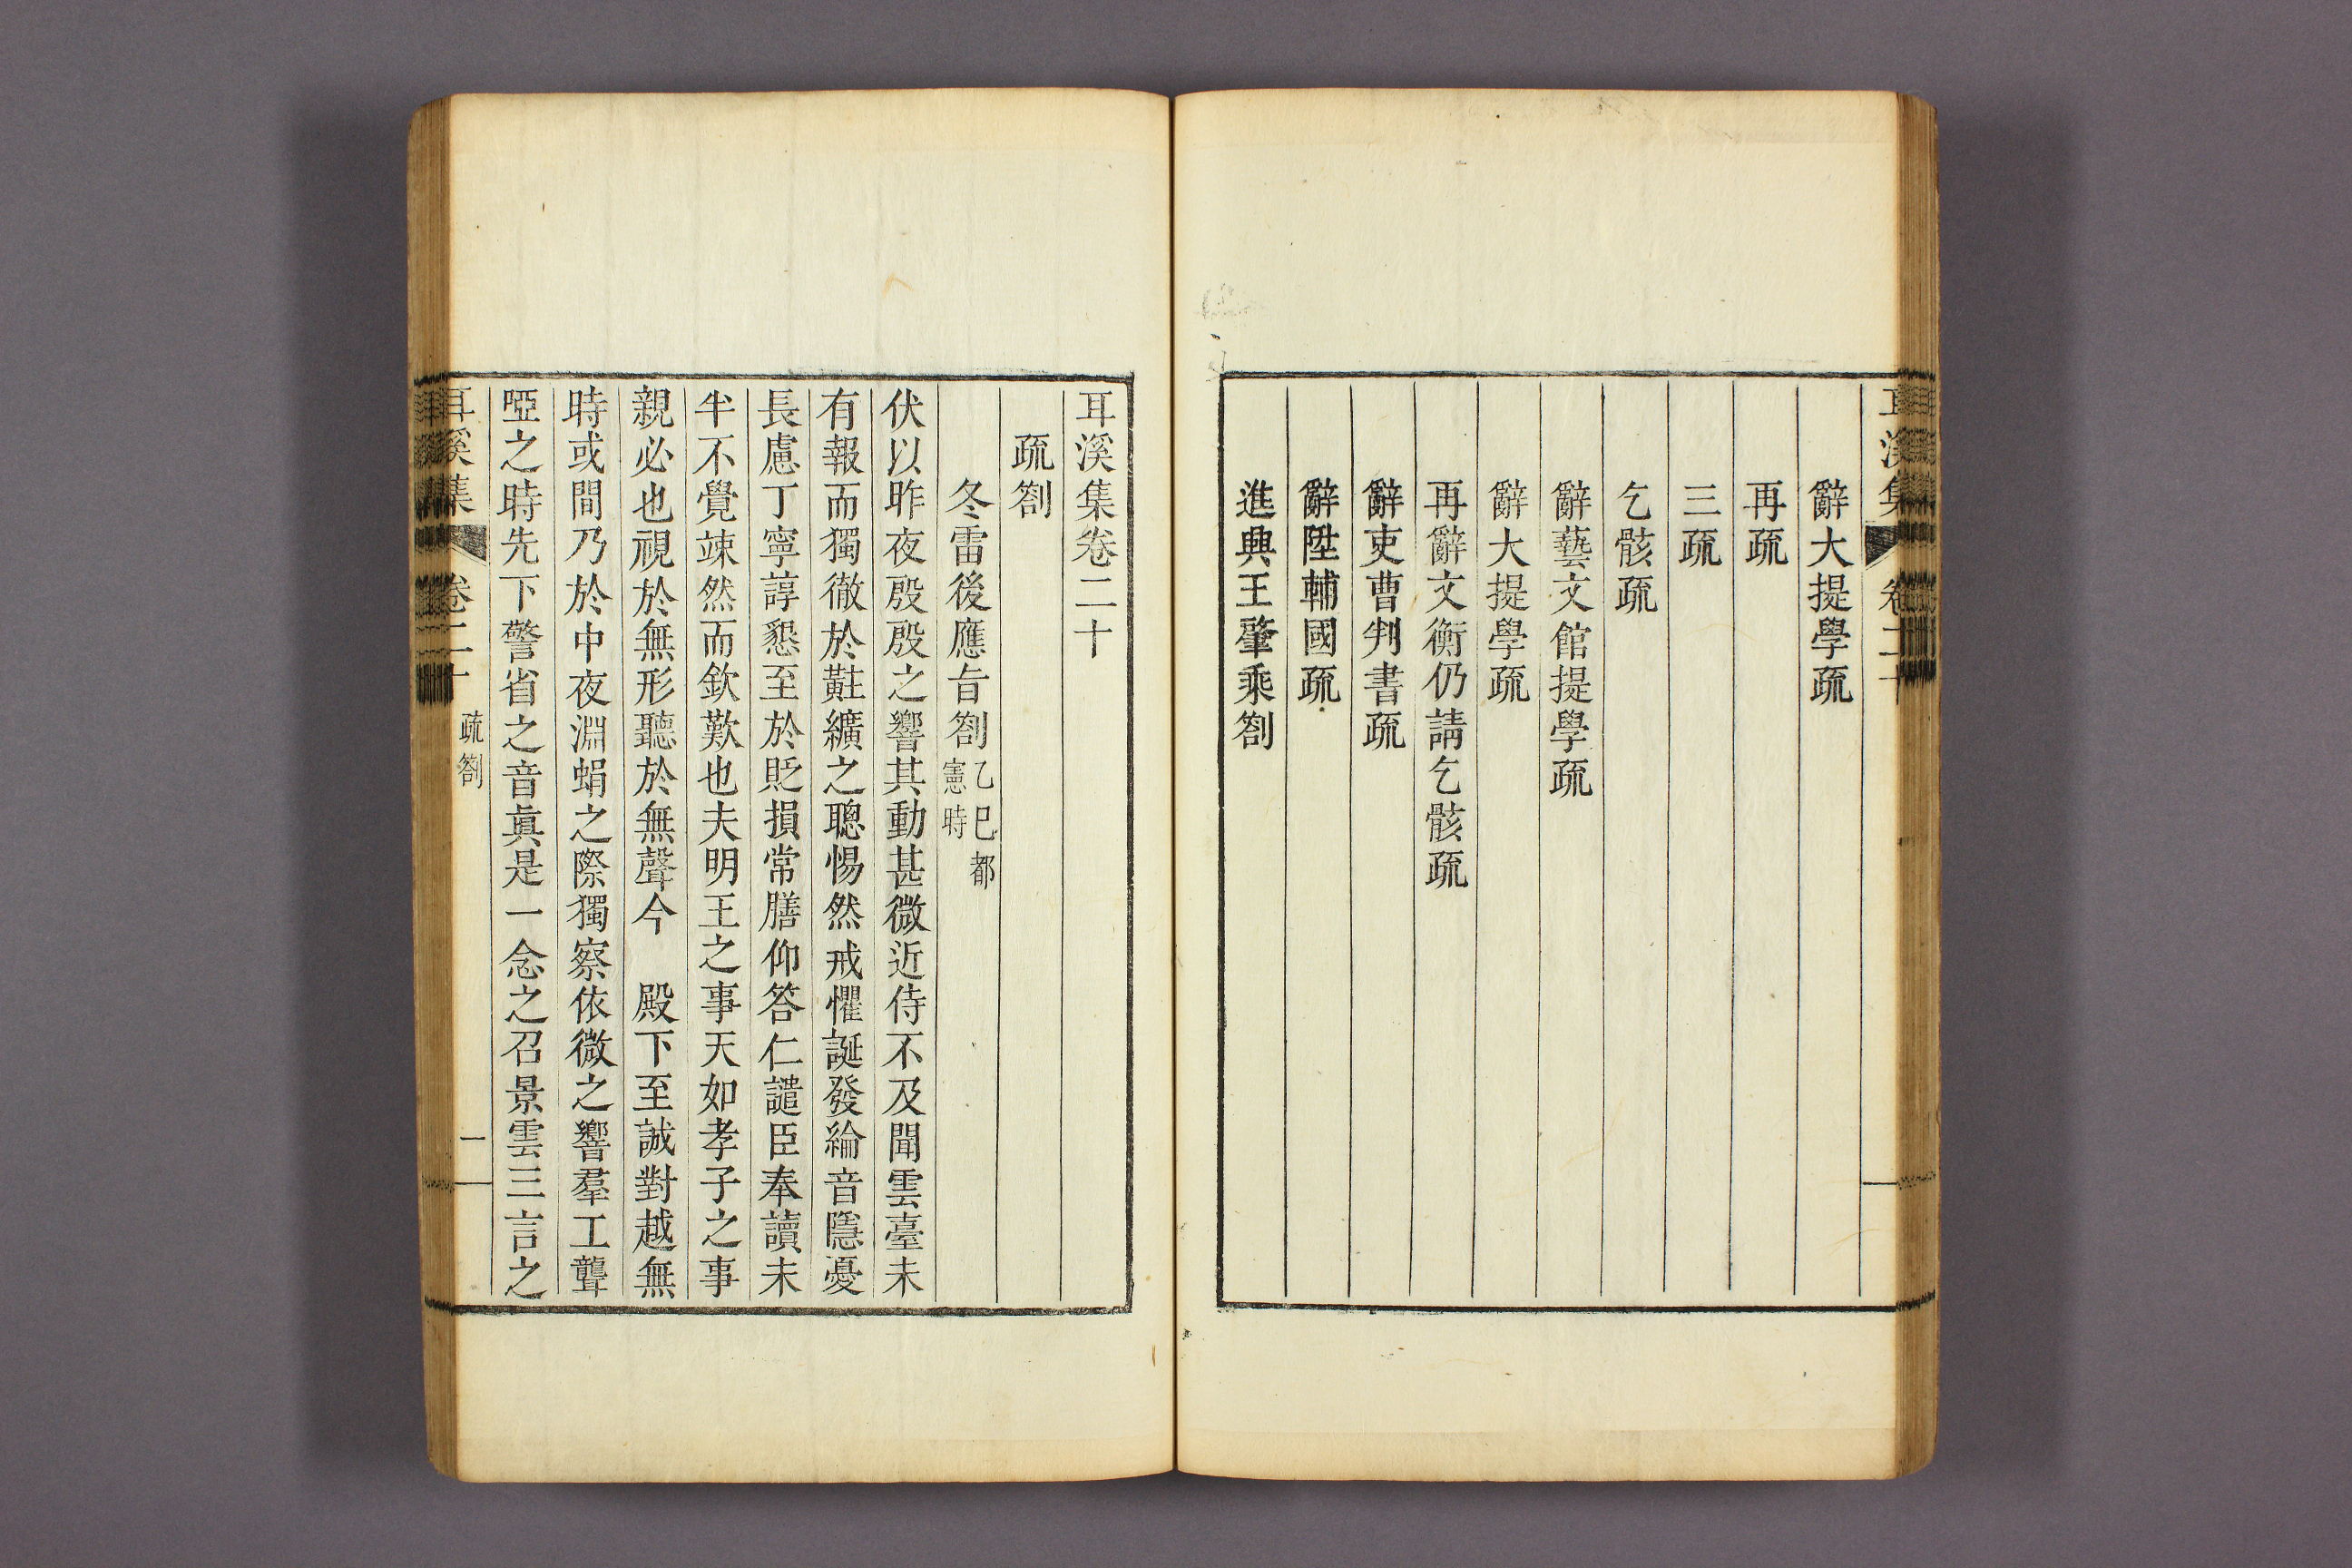 耳溪集 卷二十
辭大提學疏
再疏
三疏
乞骸疏
辭藝文館提學疏
辭大提學疏
再辭文衡仍請乞骸疏
辭吏曹判書疏
辭陞輔國疏
進興王肇乘劄
耳溪集卷二十
疏劄
冬雷後應旨劄乙巳都
憲時
伏以昨夜殷殷之響其動甚微近侍不及聞雲臺未
有報而獨徹於黈纊之聰惕然戒懼誕發綸音隱憂
長慮丁寧諄懇至於貶損常膳仰答仁譴臣奉讀未
半不覺竦然而欽歎也夫明王之事天如孝子之事
親必也視於無形聽於無聲今 殿下至誠對越無
時或間乃於中夜淵蜎之際獨察依微之響羣工聾
啞之時先下警省之音眞是一念之召景雲三言之
耳溪集 卷二十 疏劄 一